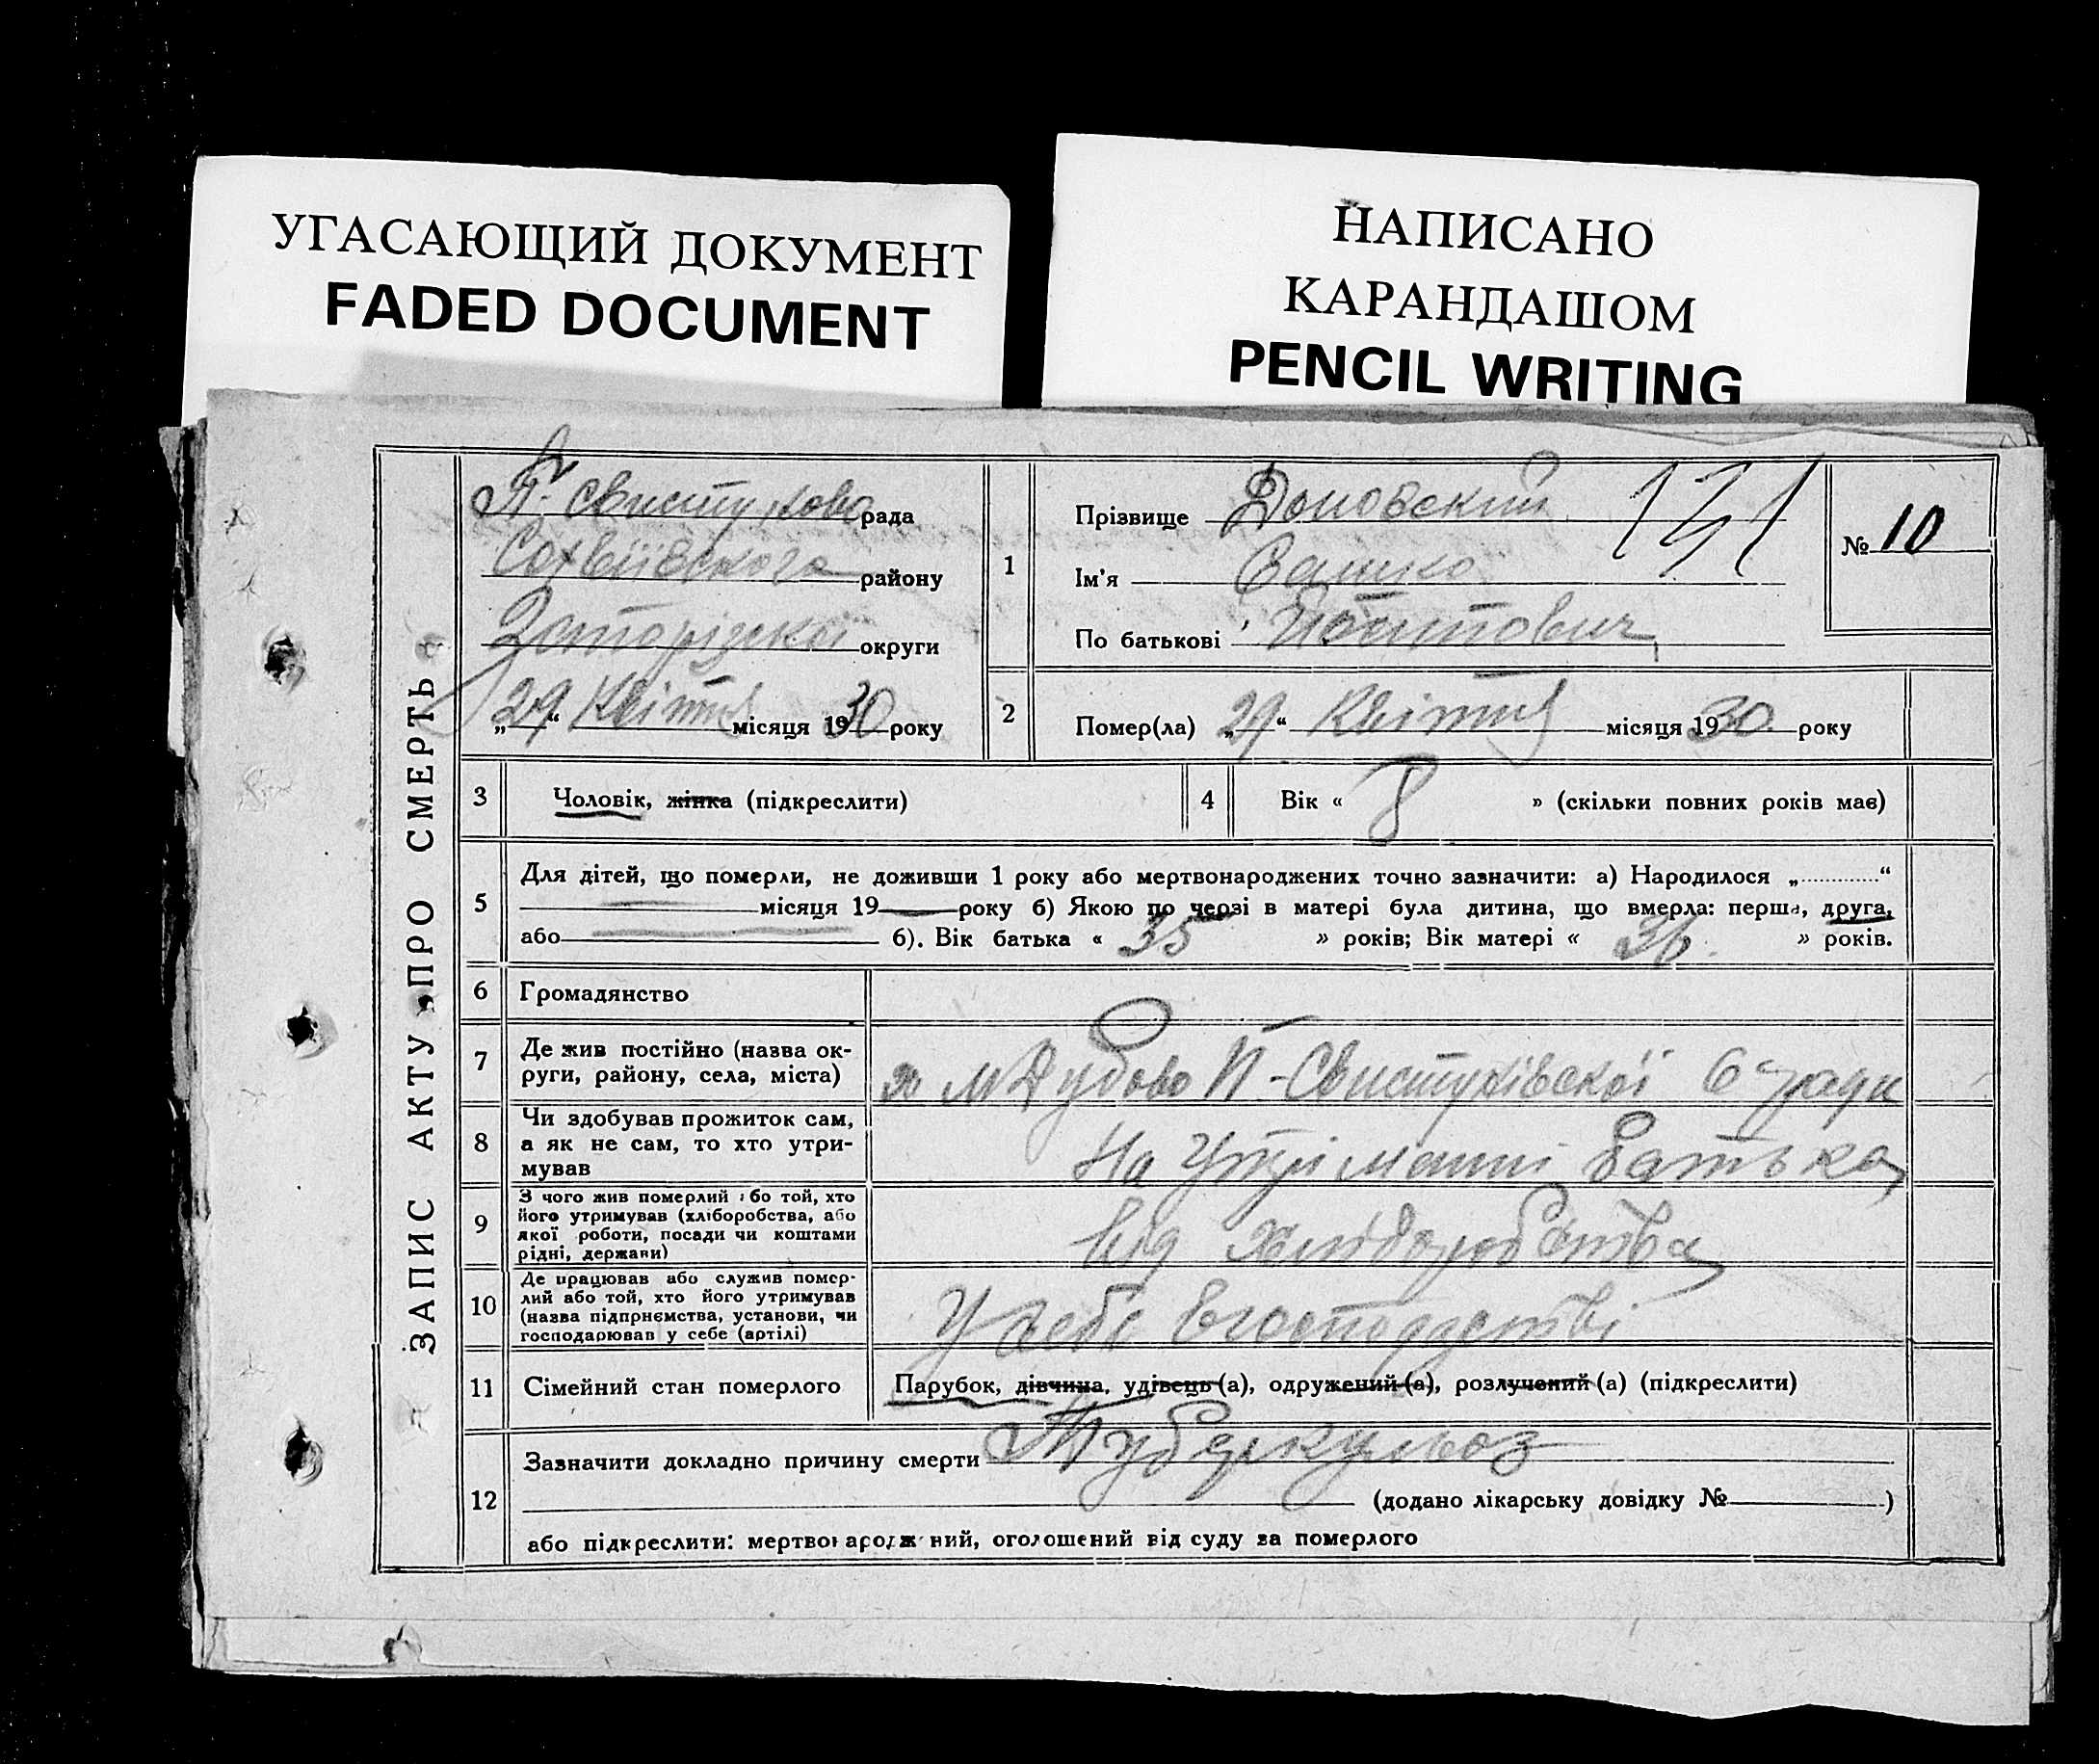 УГАСАЮЩИЙ ДОКУМЕНТ
FADED DOCUMENT
НАПИСАНО
КАРАНДАШОМ
PENCIL WRITING
ЗАПИС АКТУ ПРО СМЕРТЬ
П. Свистунова рада
Софвіївского району
Запорізскої округи
„29“ Квітня місяця 1930 року
1
Прізвище Доновский
Ім'я Сашко
По батькові
№ 10
2
Помер(ла) „29“ Квітня місяця 1930 року
3
Чоловік, жінка (підкреслити)
4
Вік « 8 » (скільки повних років має)
5
Для дітей, що померли, не доживши 1 року або мертвонароджених точно зазначити: а) Народилося „ “
місяця 19 року б) Якою по черзі в матері була дитина, що вмерла: перша, друга,
або б). Вік батька « 35 » років; Вік матері « 36 » років.
6
Громадянство
7
Де жив постійно (назва ок-
руги, району, села, міста)
П-Свистунівскої с-ради
8
Чи здобував прожиток сам,
а як не сам, то хто утри-
мував
На Утриманні батька
9
З чого жив померлий або той, хто
його утримував (хліборобства, або
якої роботи, посади чи коштами
рідні, держави)
від хліборобства
10
Де працював або служив помер-
лий або той, хто його утримував
(назва підпрнємства, установи, чи
господарював у себе (артілі)
У себе в госпордстві
11
Сімейний стан померлого
Парубок, дівчина, удівець (а), одружений (а), розлучений (а) (підкреслити)
12
Зазначити докладно причину смерти Туберкульоз
(додано лікарську довідку № )
або підкреслити: мертвонароджений, оголошений від суду за померлого